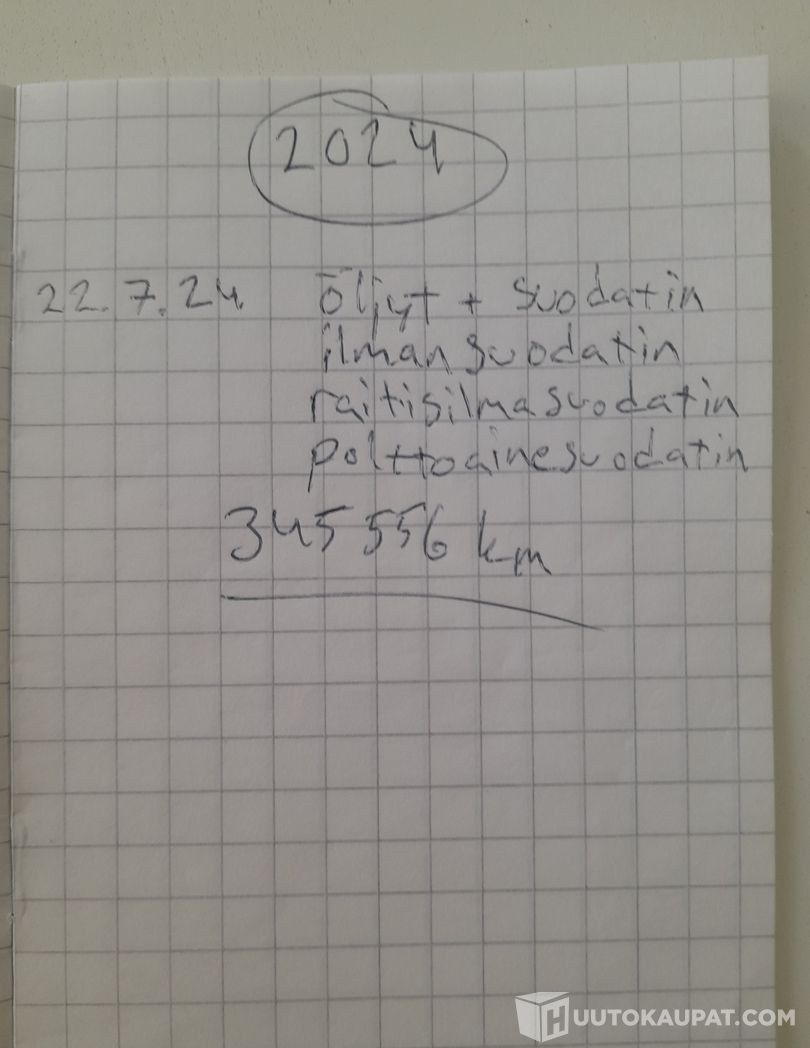 2024
22.7.24 öljyt + suodatin
ilmansuodatin
raitisilmasuodatin
polttoainesuodatin
345 556 km
HUUTOKAUPAT.COM